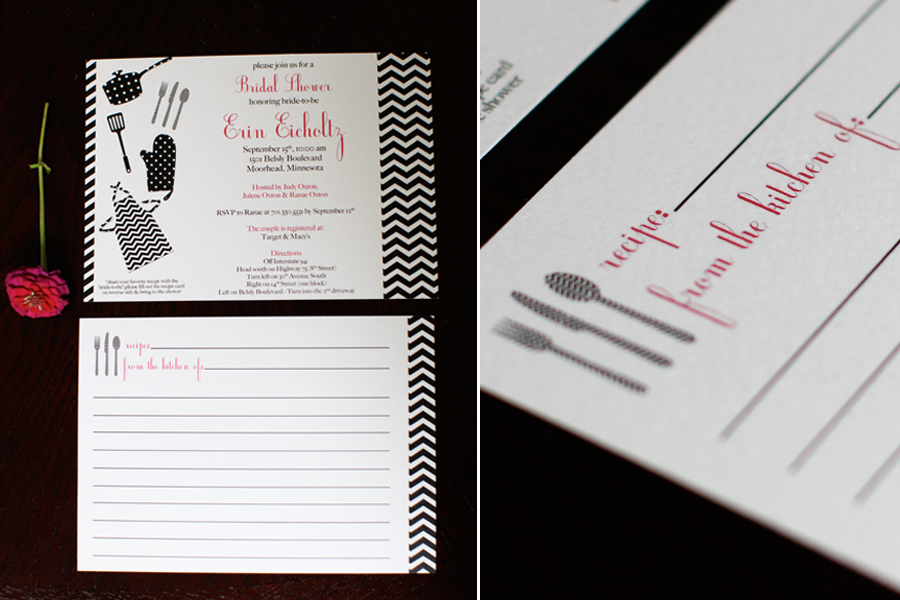 please join us for a
Bridal Shower
honoring bride-to-be
Erin Eicholtz
September 15th, 10:00 am
1501 Belsly Boulevard
Moorhead, Minnesota
Hosted by Judy Oxton,
Julene Oxton & Ranae Oxton
RSVP to Ranae at 701.330.4531 by September 12th
The couple is registered at:
Target & Macy's
Directions
Off Interstate 94:
Head south on Highway 75 (8th Street)
Turn left on 30th Avenue South
Right on 14th Street (one block)
Left on Belsly Boulevard - Turn into the 2nd driveway
*share your favorite recipe with the
bride-to-be! please fill out the recipe card
on reverse side & bring to the shower
recipe:
from the kitchen of:
card
shower
recipe:
from the kitchen of: